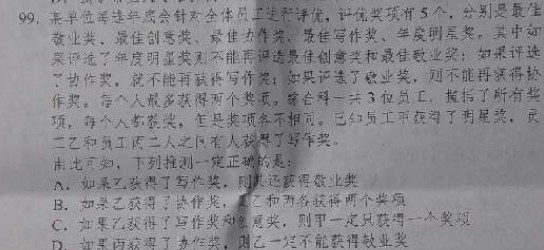 99. 某单位每逢年底会针对全体员工进行评优，评优奖项有 5 个，分别是最佳
敬业奖、最佳创意奖、最佳协作奖、最佳写作奖、年度明星奖。其中如
果评选了年度明星奖则不能再评选最佳创意奖和最佳敬业奖；如果评选
了协作奖，就不能再获得写作奖；如果评选了敬业奖，则不能再获得协
作奖。每个人最多获得两个奖项。综合科一共 3 位员工，揽括了所有奖
项，每个人都获奖，但是奖项各不相同。已知员工甲获得了明星奖，员
工乙和员工丙二人之间有人获得了写作奖。
由此可知，下列推测一定正确的是：
A．如果乙获得了写作奖，则其还获得敬业奖
B．如果乙获得了协作奖，则乙和丙各获得两个奖项
C．如果乙获得了写作奖和创意奖，则甲一定只获得一个奖项
D．如果丙获得了协作奖，则乙一定不能获得敬业奖